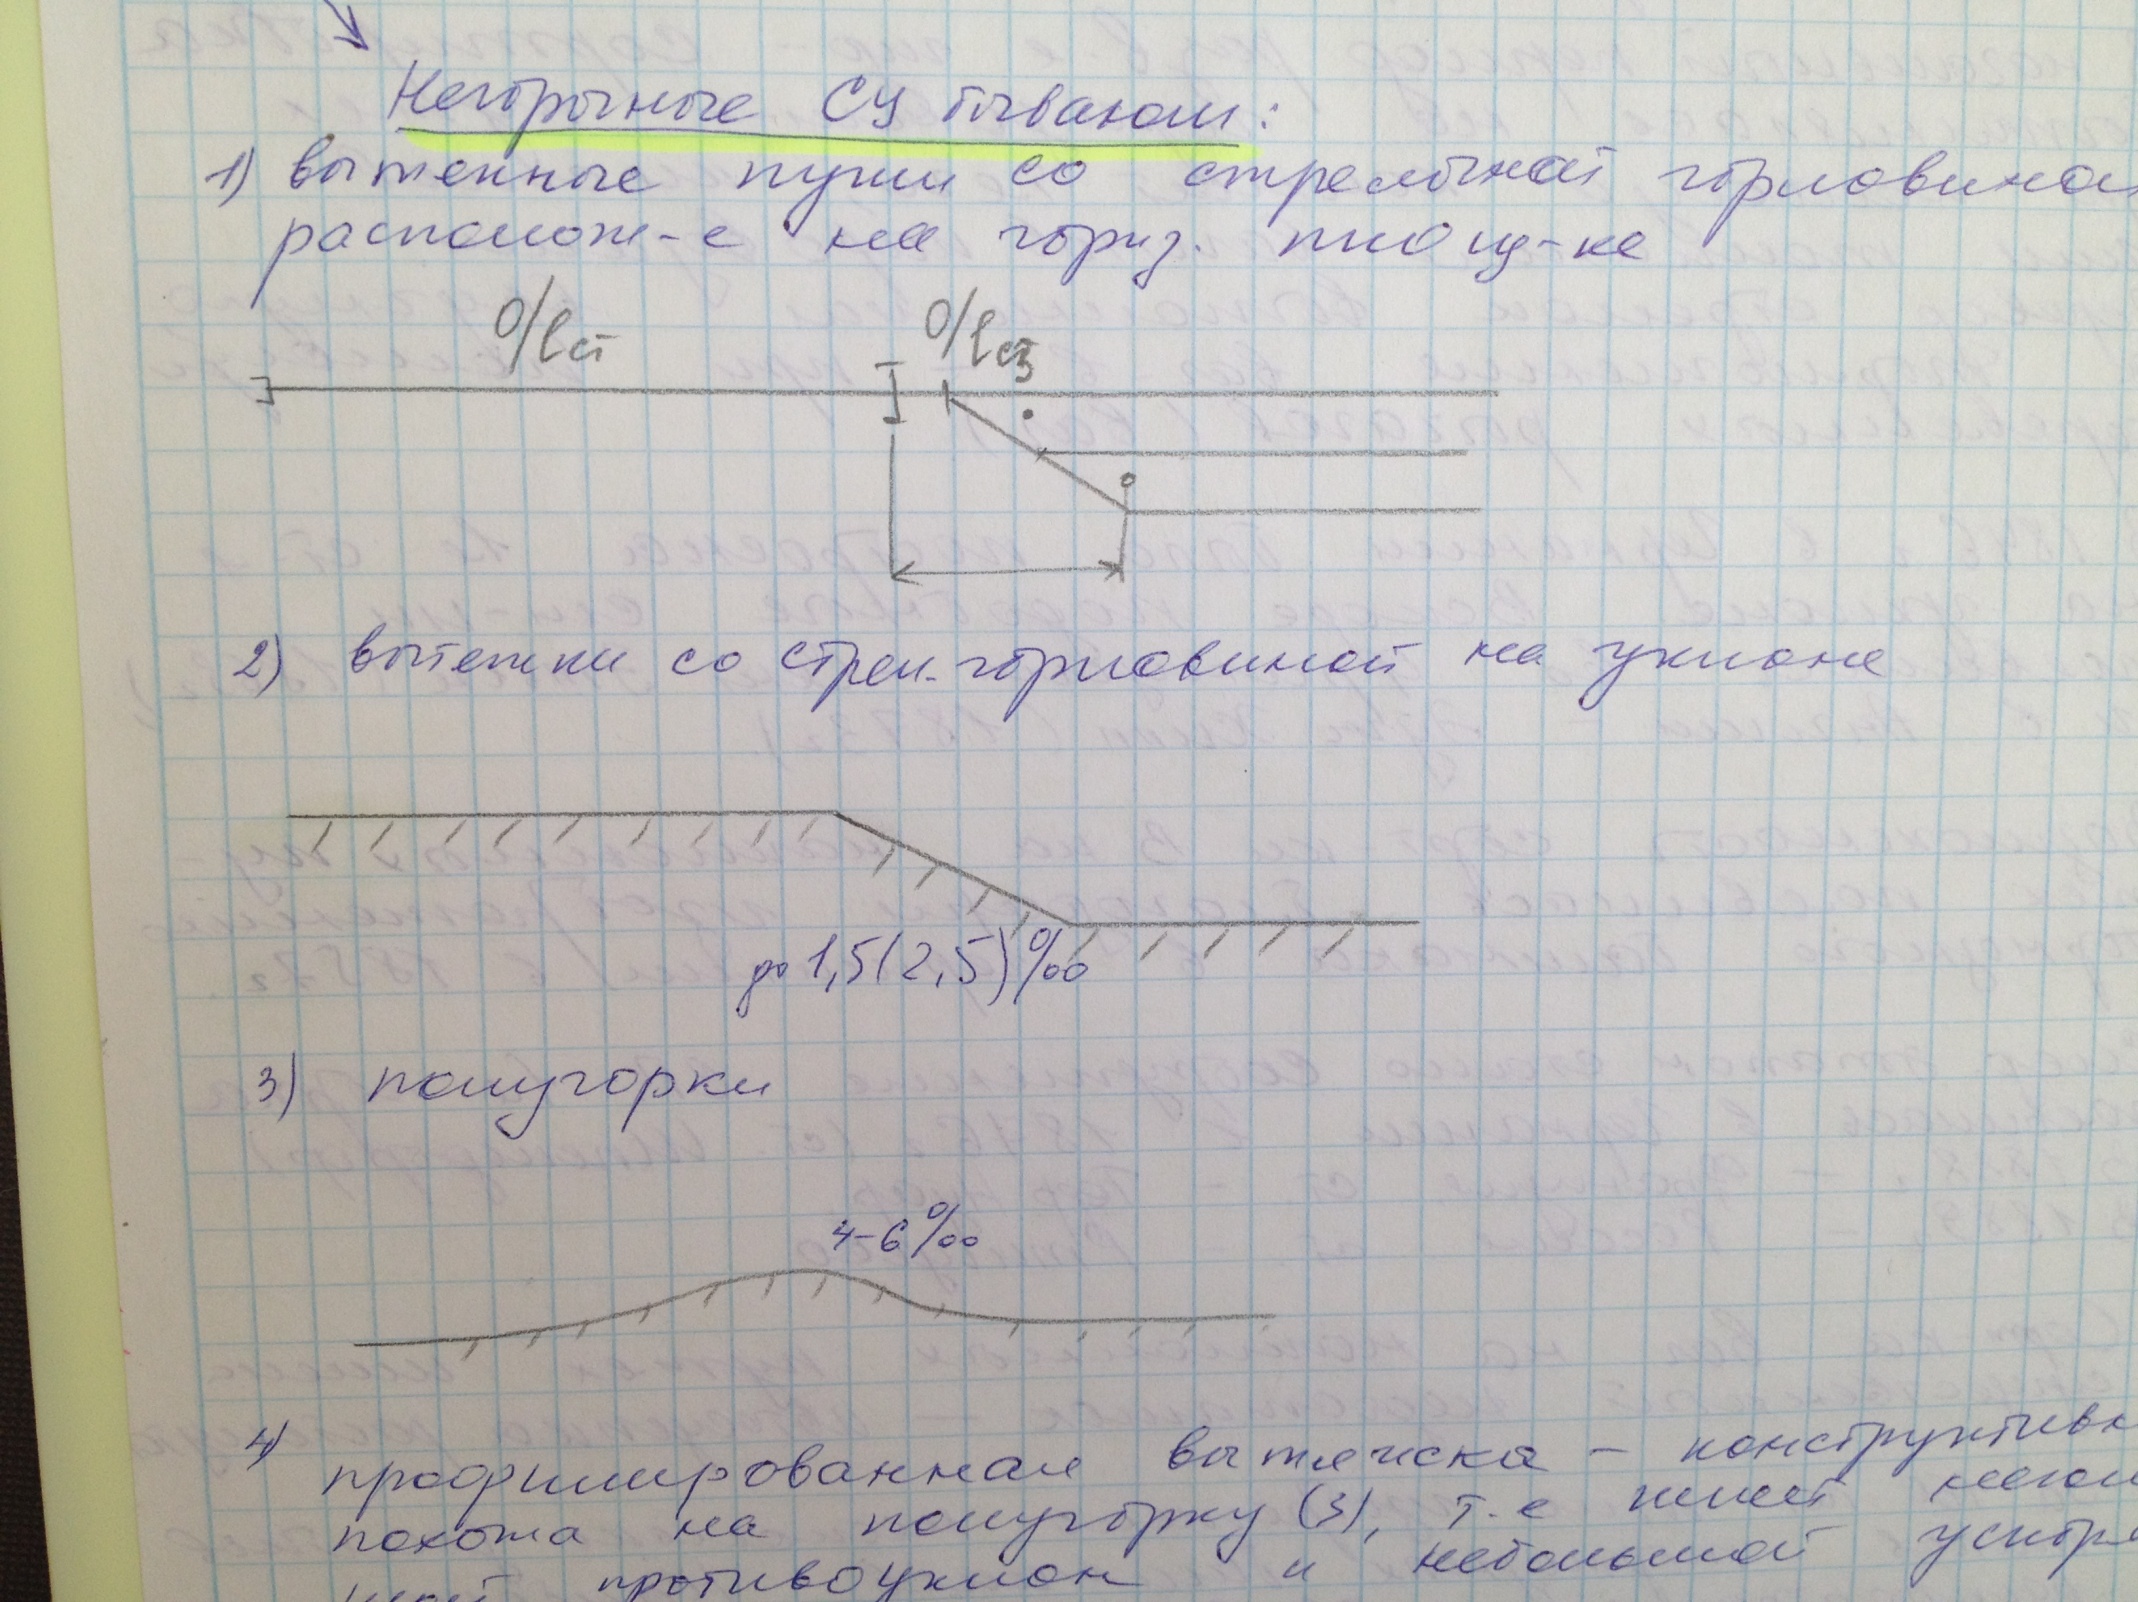 Негорочные СУ бывают:
1) вытяжные пути со стрелочной горловиной
располож-е на гориз. площ-ке
0/lст
0/lстз
2) вытяжки со стрел. горловиной на уклоне
до 1,5(2,5)‰
3) полугорки
4-6‰
4) профилированная вытяжка - конструктивн
похожа на полугорку (3), т.е имеет
противоуклон и небольшой ускор